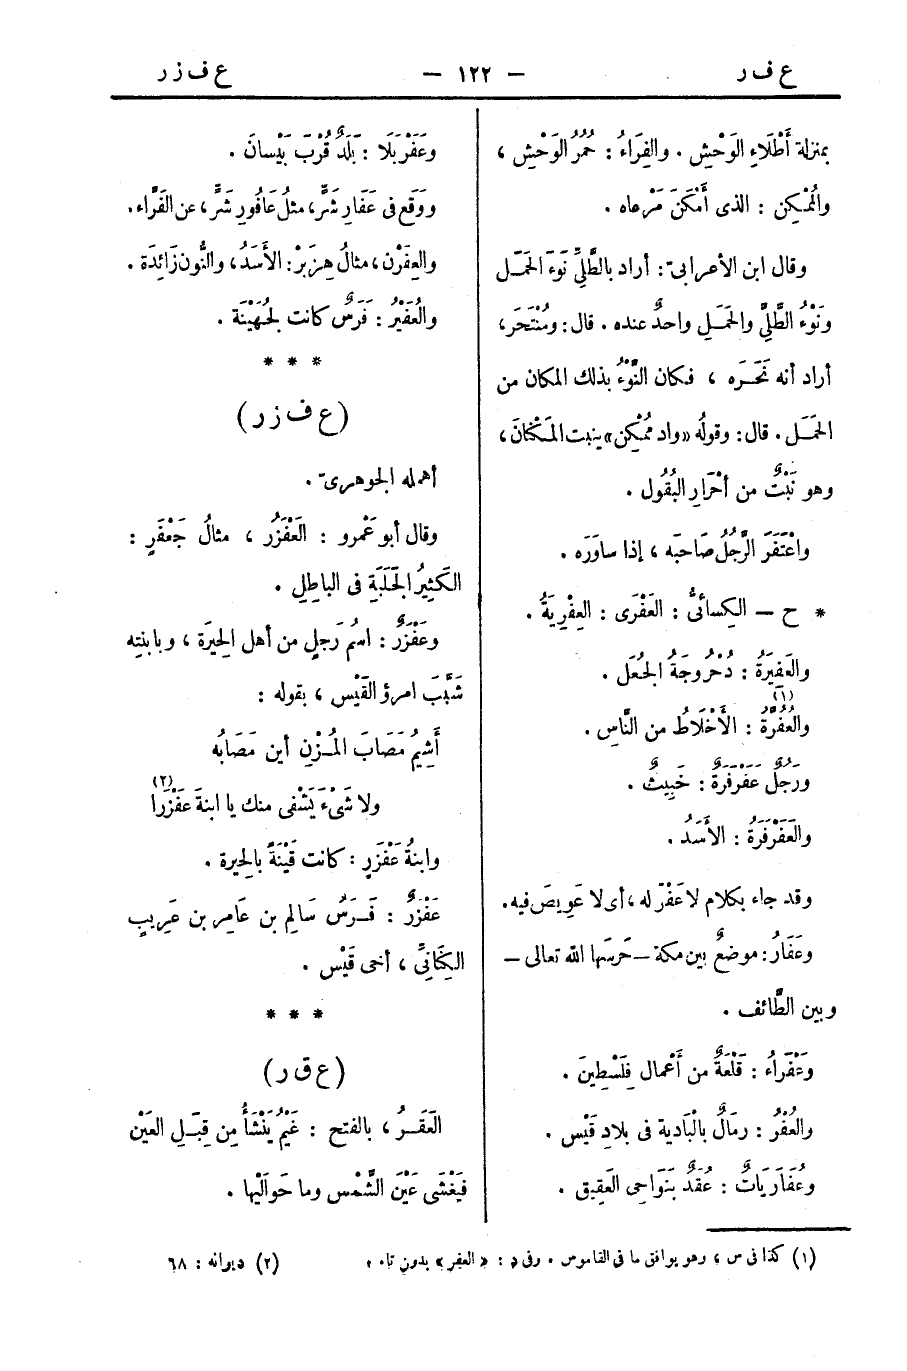 ع ف ر — ١٢٢ — ع ف ز ر
بمنزلة أَطْلَاءِ الوَحْشِ . والفِرَاءُ : حُمُرُ الوَحْشِ ،
والمُمْكِن : الذى أَمْكَنَ مَرْعاه .
وقال ابن الأعرابىّ : أراد بالطَّلِىِّ نَوْءَ الحَمَل
ونَوْءُ الطَّلِىِّ والحَمَلِ واحدٌ عنده . قال : ومُنْتَحَر ،
أراد أنه نَحَرَه ، فكان النَّوْءُ بذلك المكان من
الحَمَل . قال : وقولُه «واد مُمْكِن» ينبت المَكْنانَ ،
وهو نَبْتٌ من أَحْرَارِ البُقُول .
واعْتَفَرَ الرَّجُلُ صَاحبَه ، إذا ساوَرَه .
* ح — الكِسائىُّ : العَفْرَى : العِفْرِيَةُ .
والعَفِيرَةُ : دُحْرُوجَةُ الجُعَل .
والعُفُرَّةُ (١) : الأَخْلَاطُ من النَّاسِ .
ورَجُلٌ عَفَرْفَرَةٌ : خَبِيثٌ .
والعَفَرْفَرَةُ : الأَسَدُ .
وقد جاء بكلام لا عَفْرَ له ، أى لا عَوِيصَ فيه .
وعَفَارٌ : موضعٌ بين مكة — حَرَسَها الله تعالى —
وبين الطَّائف .
وعَفْرَاءُ : قَلْعَةٌ من أَعْمال فِلَسْطِينَ .
والعُفْرُ : رمَالٌ بالبَادية فى بلادِ قَيْس .
وعُفَاريَاتٌ : عُقَدٌ بنَواحِى العَقِيق .
وعَفَرْبَلَا : بَلَدٌ قُرْبَ بَيْسانَ .
ووَقَع فى عَفَارِ شَرٍّ ، مثلُ عَافُورِ شَرٍّ ، عن الفَرَّاء .
والعِفَرْن ، مثالُ هِزَبْر : الأَسَدُ ، والنُّون زَائِدَة .
والعُفَيْرُ : فَرَسٌ كانت لجُهَيْنَة .
* * *
(ع ف ز ر)
أهمله الجوهرىّ .
وقال أبو عَمْرو : العَفْزَرُ ، مثالُ جَعْفَرٍ :
الكَثِيرُ الجَلَبَةِ فى الباطِلِ .
وعَفْزَرٌ : اسمُ رَجلٍ من أهل الحِيرَة ، وبابنته
شَبَّبَ امرؤ القَيْس ، بقوله :
أَشِيمُ مَصَابَ المُزْنِ أين مَصَابُه
ولا شَىْءَ يَشْفى منك يا ابنةَ عَفْزَرا (٢)
وابنةُ عَفْزَرٍ : كانت قَيْنَةً بالحِيرة .
عَفْزَرٌ : فَرَسُ سَالِم بن عَامِر بن عَرِيبٍ
الكِنَانِىِّ ، أخى قَيْس .
* * *
(ع ق ر)
العَقَرُ ، بالفتح : غَيْمٌ يَنْشَأُ مِن قِبَلِ العَيْن
فيَغْشَى عَيْنَ الشَّمْس وما حَوالَيْها .
(١) كذا فى س ، وهو يوافق ما فى القاموس . وفى د : «العفر» بدون تاء .
(٢) ديوانه : ٦٨